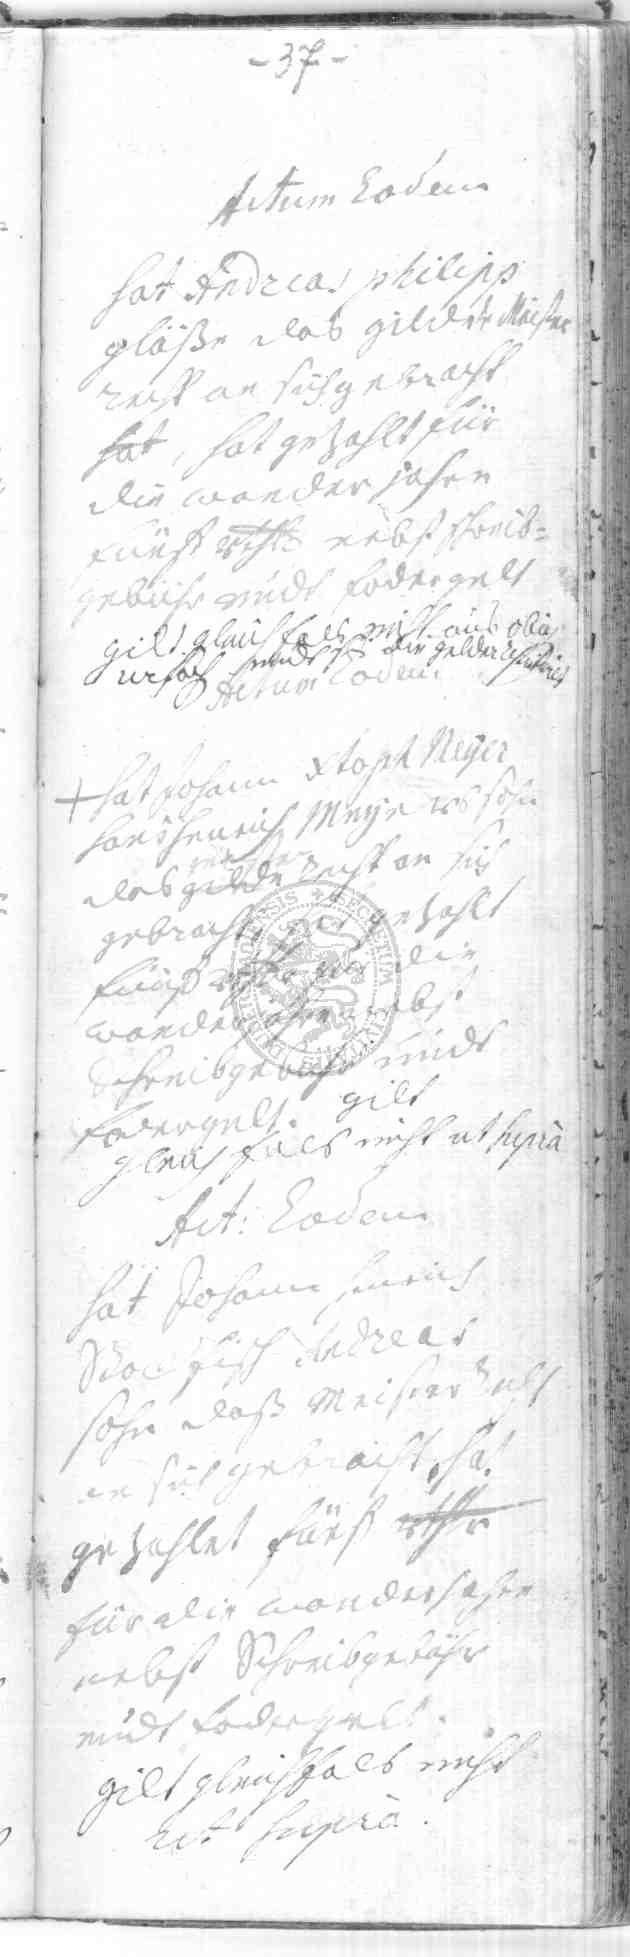 -37-
Actum Eodem
hat Andreas philips
glöße das gilde Meister
recht an sich gebracht
hat, hat gezahlt für
die wander jahre
fünf rthlr nebst schreib=
gebühr undt fodergelt
gilt gleichfals nicht aus obig
ursach undt ist die gelder
Actum Eodem
+ hat Johann Xtoph Meyer
Hans Henrich Meyers sohn
das gilde recht an sich
gebracht, hat gezahlt
fünf rthlr für die
wander jahre nebst
Schreibgebühr undt
fodergelt. gilt
gleichfals nicht ut supra
Act: Eodem
hat Johann Henrich
Andreas
sohn daß Meister recht
an sich gebracht, hat
gezahlet fünf rthlr
für die wanderjahre
nebst Schreibgebühr
undt fodergelt.
gilt gleichfals nicht
ut supra.
SECRETUM